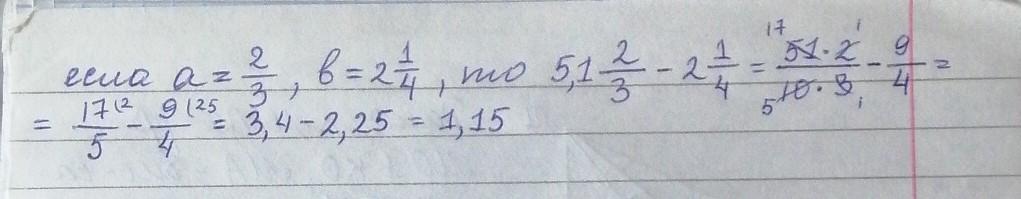 если a = 2/3, в = 2 1/4, то 5,1 2/3 − 2 1/4 = 17 51 · 2 1 / 5 10 · 3 1 − 9/4 =
= 17(2/5 − 9(25/4 = 3,4 − 2,25 = 1,15